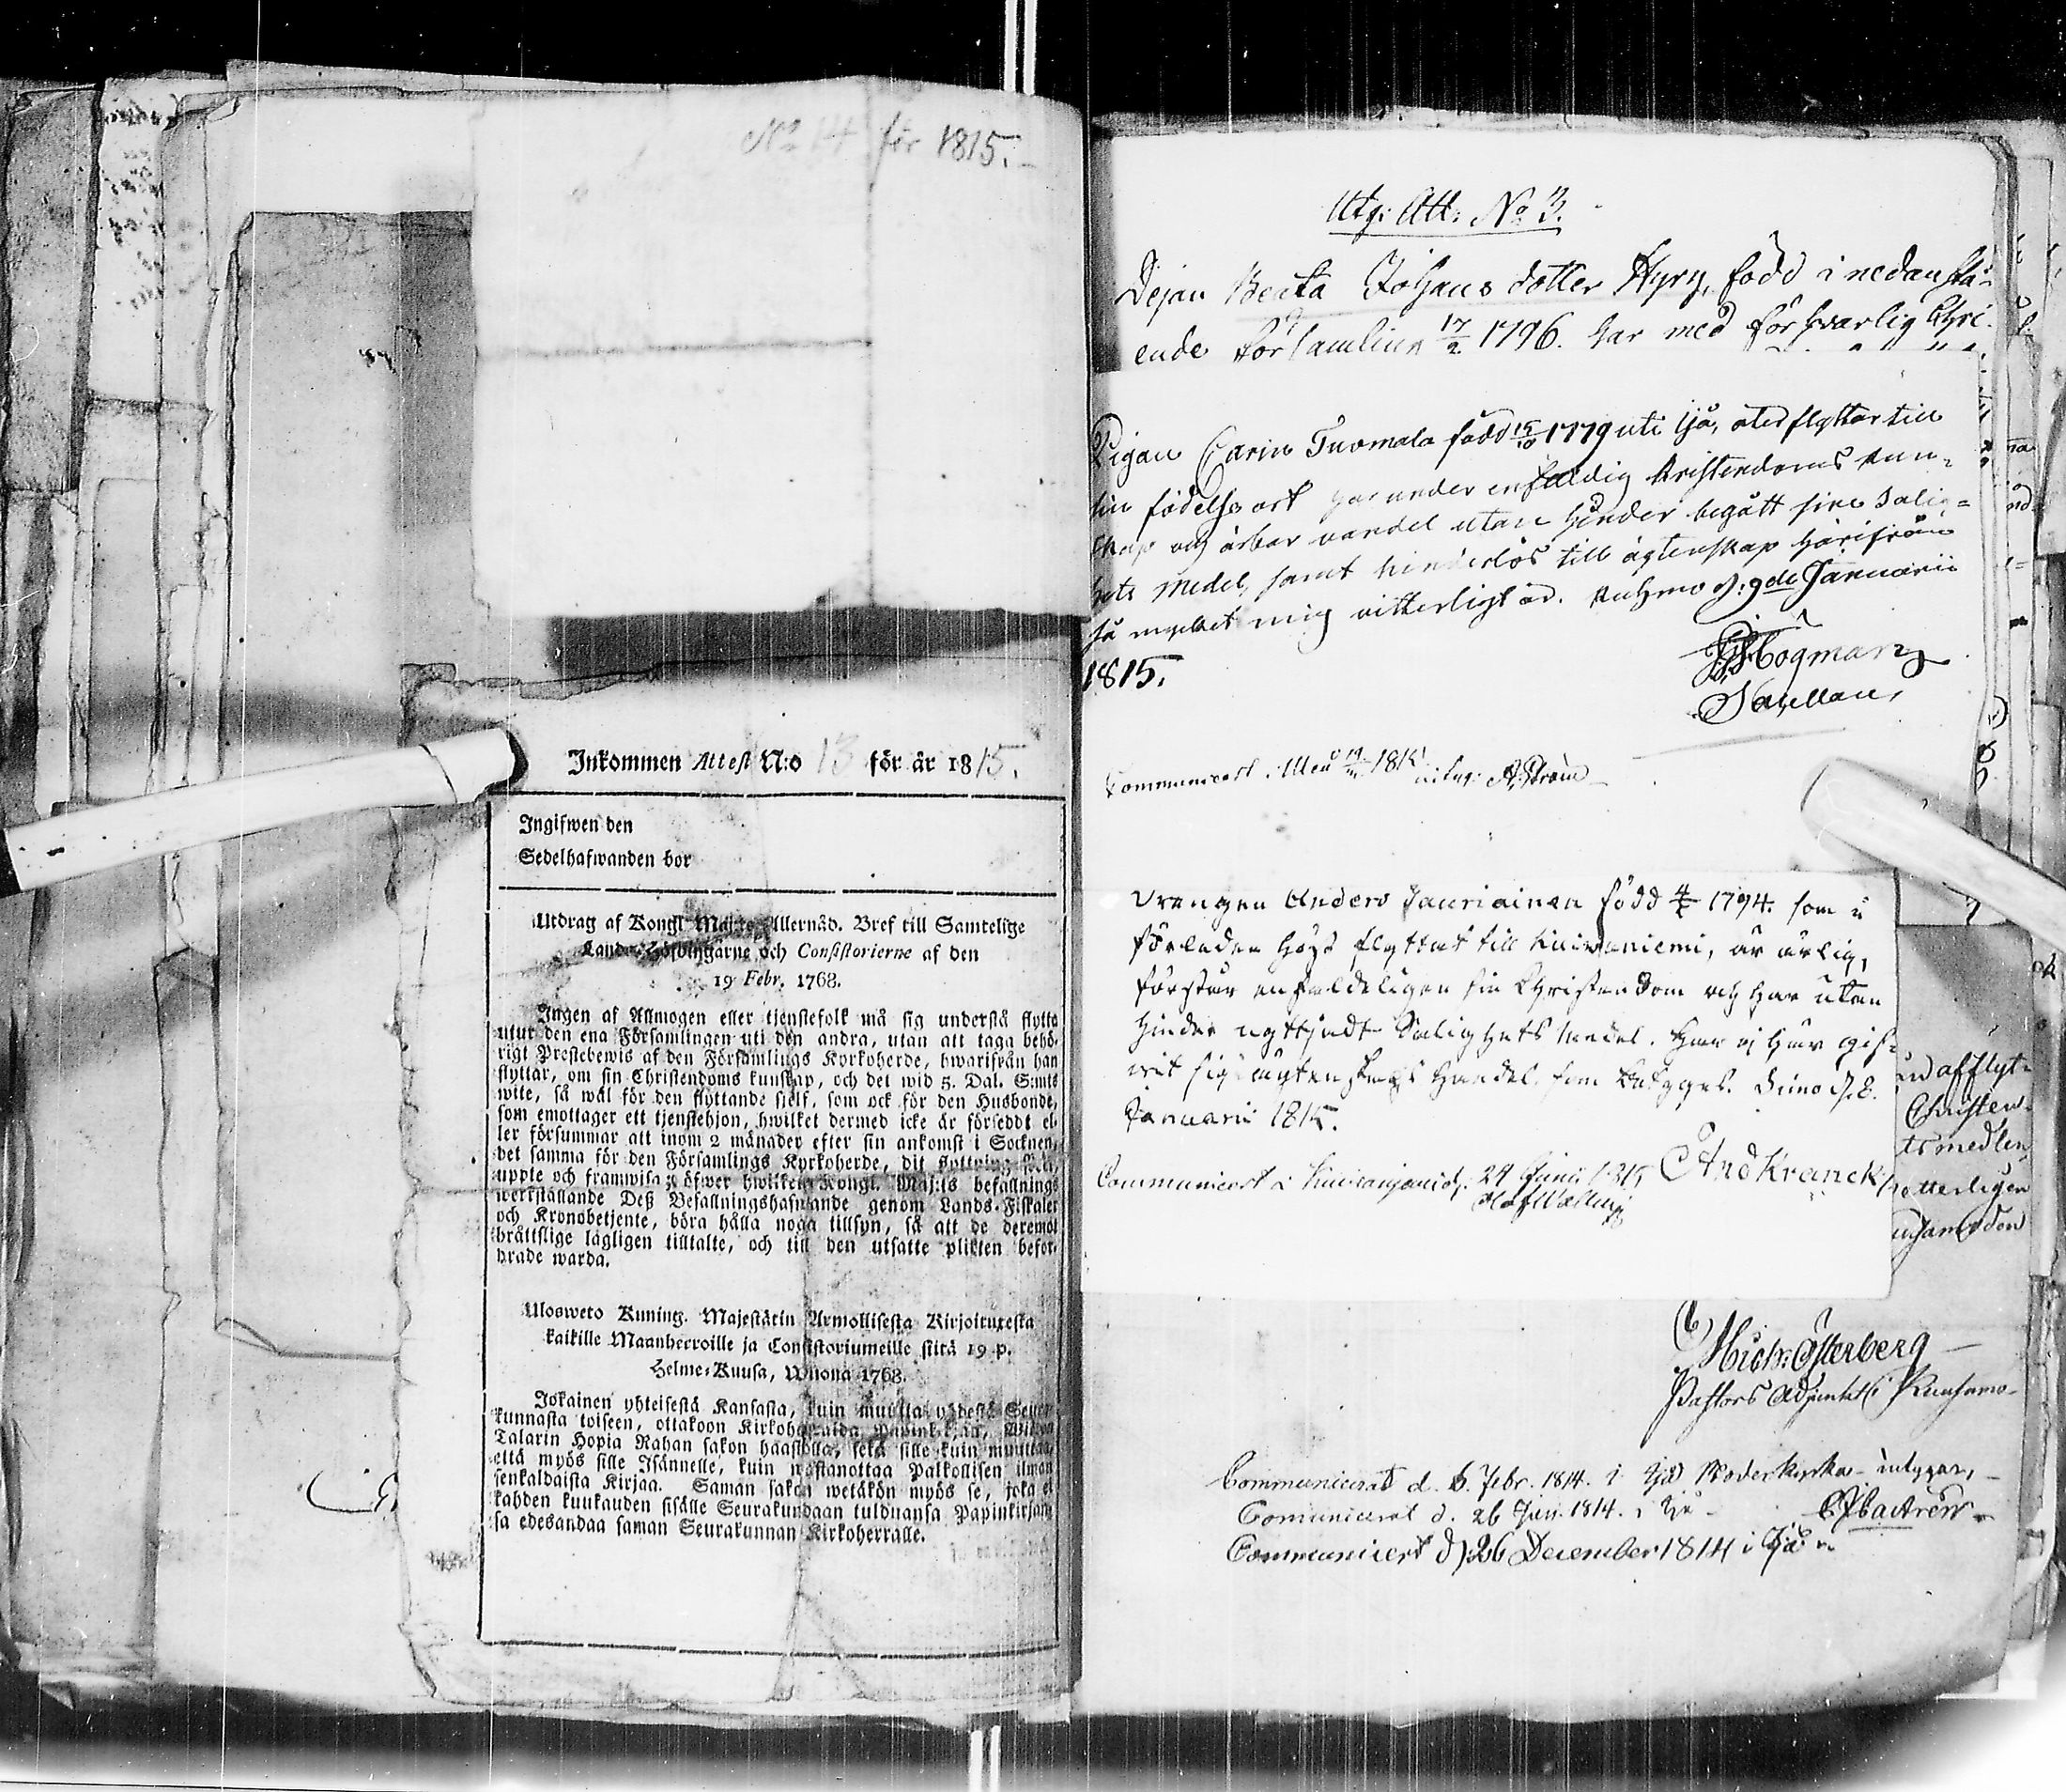 No 14 för 1815.
Inkommen Attest N:o 13 för år 1815.
Ingifwen den
Sedelhafwanden bor
Utdrag af Kongl. Maj:ts Allernåd. Bref till Samtelige
Lands-Höfdingarne och Consistorierne af den
19 Febr. 1768.
Ingen af Allmogen eller tjenstefolk må sig understå flytta
utur den ena Församlingen uti den andra, utan att taga behö-
rigt Prestebewis af den Församlings Kyrkoherde, hwarifrån han
flyttar, om sin Christendoms kunskap, och det wid 5. Dal. S:mts
wite, så wäl för den flyttande sjelf, som ock för den Husbonde,
som emottager ett tjenstehjon, hwilket dermed icke är försedt el-
ler försummar att inom 2 månader efter sin ankomst i Socknen,
det samma för den Församlings Kyrkoherde, dit flyttning
uppte och framwisa; öfwer hwilken Kongl. Maj:ts befallnings
werkställande Deß Befallningshafwande genom Lands-Fiskaler
och Kronobetjente, böra hålla noga tillsyn, så att de deremot
bråttslige lagligen tilltalte, och till den utsatte plikten befor-
drade warda.
Ulosweto Kuning. Majestätin Armollisesta Kirjoituxesta
kaikille Maanherroille ja Consistoriumeille siitä 19 p.
Helme-Kuusa, Wuona 1768.
Jokainen yhteisestä Kansasta, kuin muutta yhdestä Seura-
kunnasta toiseen, ottakoon Kirkoherralda Papinkirjan, Wiiden
Talarin Hopia Rahan sakon haastolla, sekä sille kuin muuttaa,
että myös sille Isännelle, kuin wastanottaa Palkollisen ilman
senkaldaista Kirjaa. Saman sakon wetäkön myös se, joka ei
kahden kuukauden sisälle Seurakundaan tulduansa Papinkirjaan-
sa edesandaa saman Seurakunnan Kirkoherralle.
Utg: Att: No 3.
Dejan Beata Johans dotter Hyry, född i nedanstå-
ende församling 17/2 1796. har med försvarlig Chri-
Pigan Carin Tuomala född 15/10 1779 uti Ijå, återflyttar till
sin födelseort har under enfaldig kristendoms kun-
skap och ärbar vandel utan hinder begått sine salig-
hets medel, samt hinderlös till ägtenskap härifrån
så mycket mig vitterligt är. Kuhmo d: 9de Januarii
1815.
Hogman
Sacellan,
Communicerat 1815 A. Ström
Drengen Anders Jauriainen född 4/5 1794. som i
förleden höst flyttat till Kiiwaniemi, är ärlig,
förstår enfaldeligen sin Christendom och har utan
hinder nyttjadt Salighets medel. Han ej har gif-
vit sig i ägtenskaps handel, som betyges. Simo d. 8.
Januarii 1815.
And Kranck
Communicerat i d: 24 Junii 1815
Olof Wallin
nd afflyt-
Christen-
ts medlen
hotterligen
Mich: Österberg
Pastors Adjunkt i Kuusamo
Communicerat d. 6. Febr. 1814. i Ijå Moderkyrka intygar,
Comunicerat d. 26 Jun. 1814. i Ijå
C J Castrén
Communicert d: 26 December 1814 i Ijå